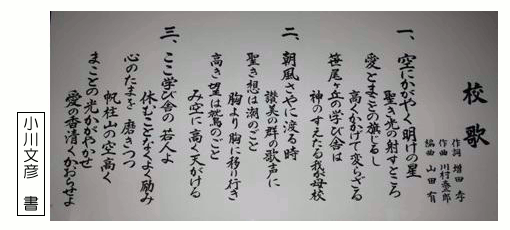 校歌
作詞 増田 孝
作曲 川村泰一郎
編曲 山田 有
一、空にかがやく 明けの星
聖き光の射すところ
愛とまことの旗じるし
高くかかげて変らざる
笹尾ヶ丘の学び舎は
神のすえたる我が母校
二、朝風さやに渡る時
讃美の群の歌声に
聖き想は潮のごと
胸より胸に移り行き
高き望は鷲のごと
み空に高く天がける
三、ここ学び舎の 若人よ
休むことなくよく励み
心のたまを 磨きつつ
帆柱山の空高く
まことの光かがやかせ
愛の香清くかおらせよ
小川文彦 書